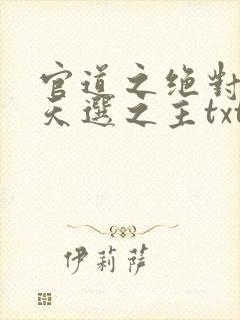 官道之绝对
天选之主txt
伊莉萨